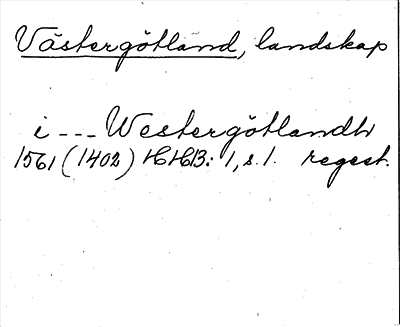 Västergötland, landskap
i --- Westergötlandh
1561 (1402) HHB: 1, s. 1. regest.